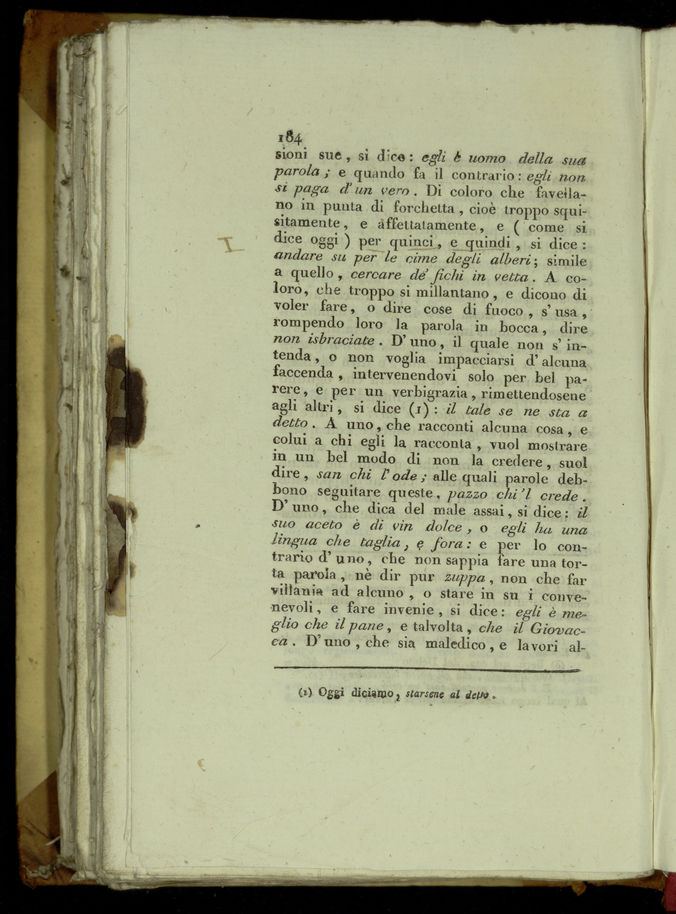 184
sioni sue, si dice: egli è uomo della sua
parola; e quando fa il contrario: egli non
si paga d'un vero. Di coloro che favella-
no in punta di forchetta, cioè troppo squi-
sitamente, e affettatamente, e ( come si
dice oggi ) per quinci, e quindi, si dice:
andare su per le cime degli alberi; simile
a quello, cercare de' fichi in vetta. A co-
loro, che troppo si millantano, e dicono di
voler fare, o dire cose di fuoco, s'usa,
rompendo loro la parola in bocca, dire
non isbraciate. D'uno, il quale non s'in-
tenda, o non voglia impacciarsi d'alcuna
faccenda, intervenendovi solo per bel pa-
rere, e per un verbigrazia, rimettendosene
agli altri, si dice (1): il tale se ne sta a
detto. A uno, che racconti alcuna cosa, e
colui a chi egli la racconta, vuol mostrare
in un bel modo di non la credere, suol
dire, san chi l'ode; alle quali parole deb-
bono seguitare queste, pazzo chi'l crede.
D'uno, che dica del male assai, si dice: il
suo aceto è di vin dolce, o egli ha una
lingua che taglia, e fora: e per lo con-
trario d'uno, che non sappia fare una tor-
ta parola, nè dir pur zuppa, non che far
villania ad alcuno, o stare in su i conve-
nevoli, e fare invenie, si dice: egli è me-
glio che il pane, e talvolta, che il Giovac-
ca. D'uno, che sia maledico, e lavori al-
(1) Oggi diciamo, starsene al detto.